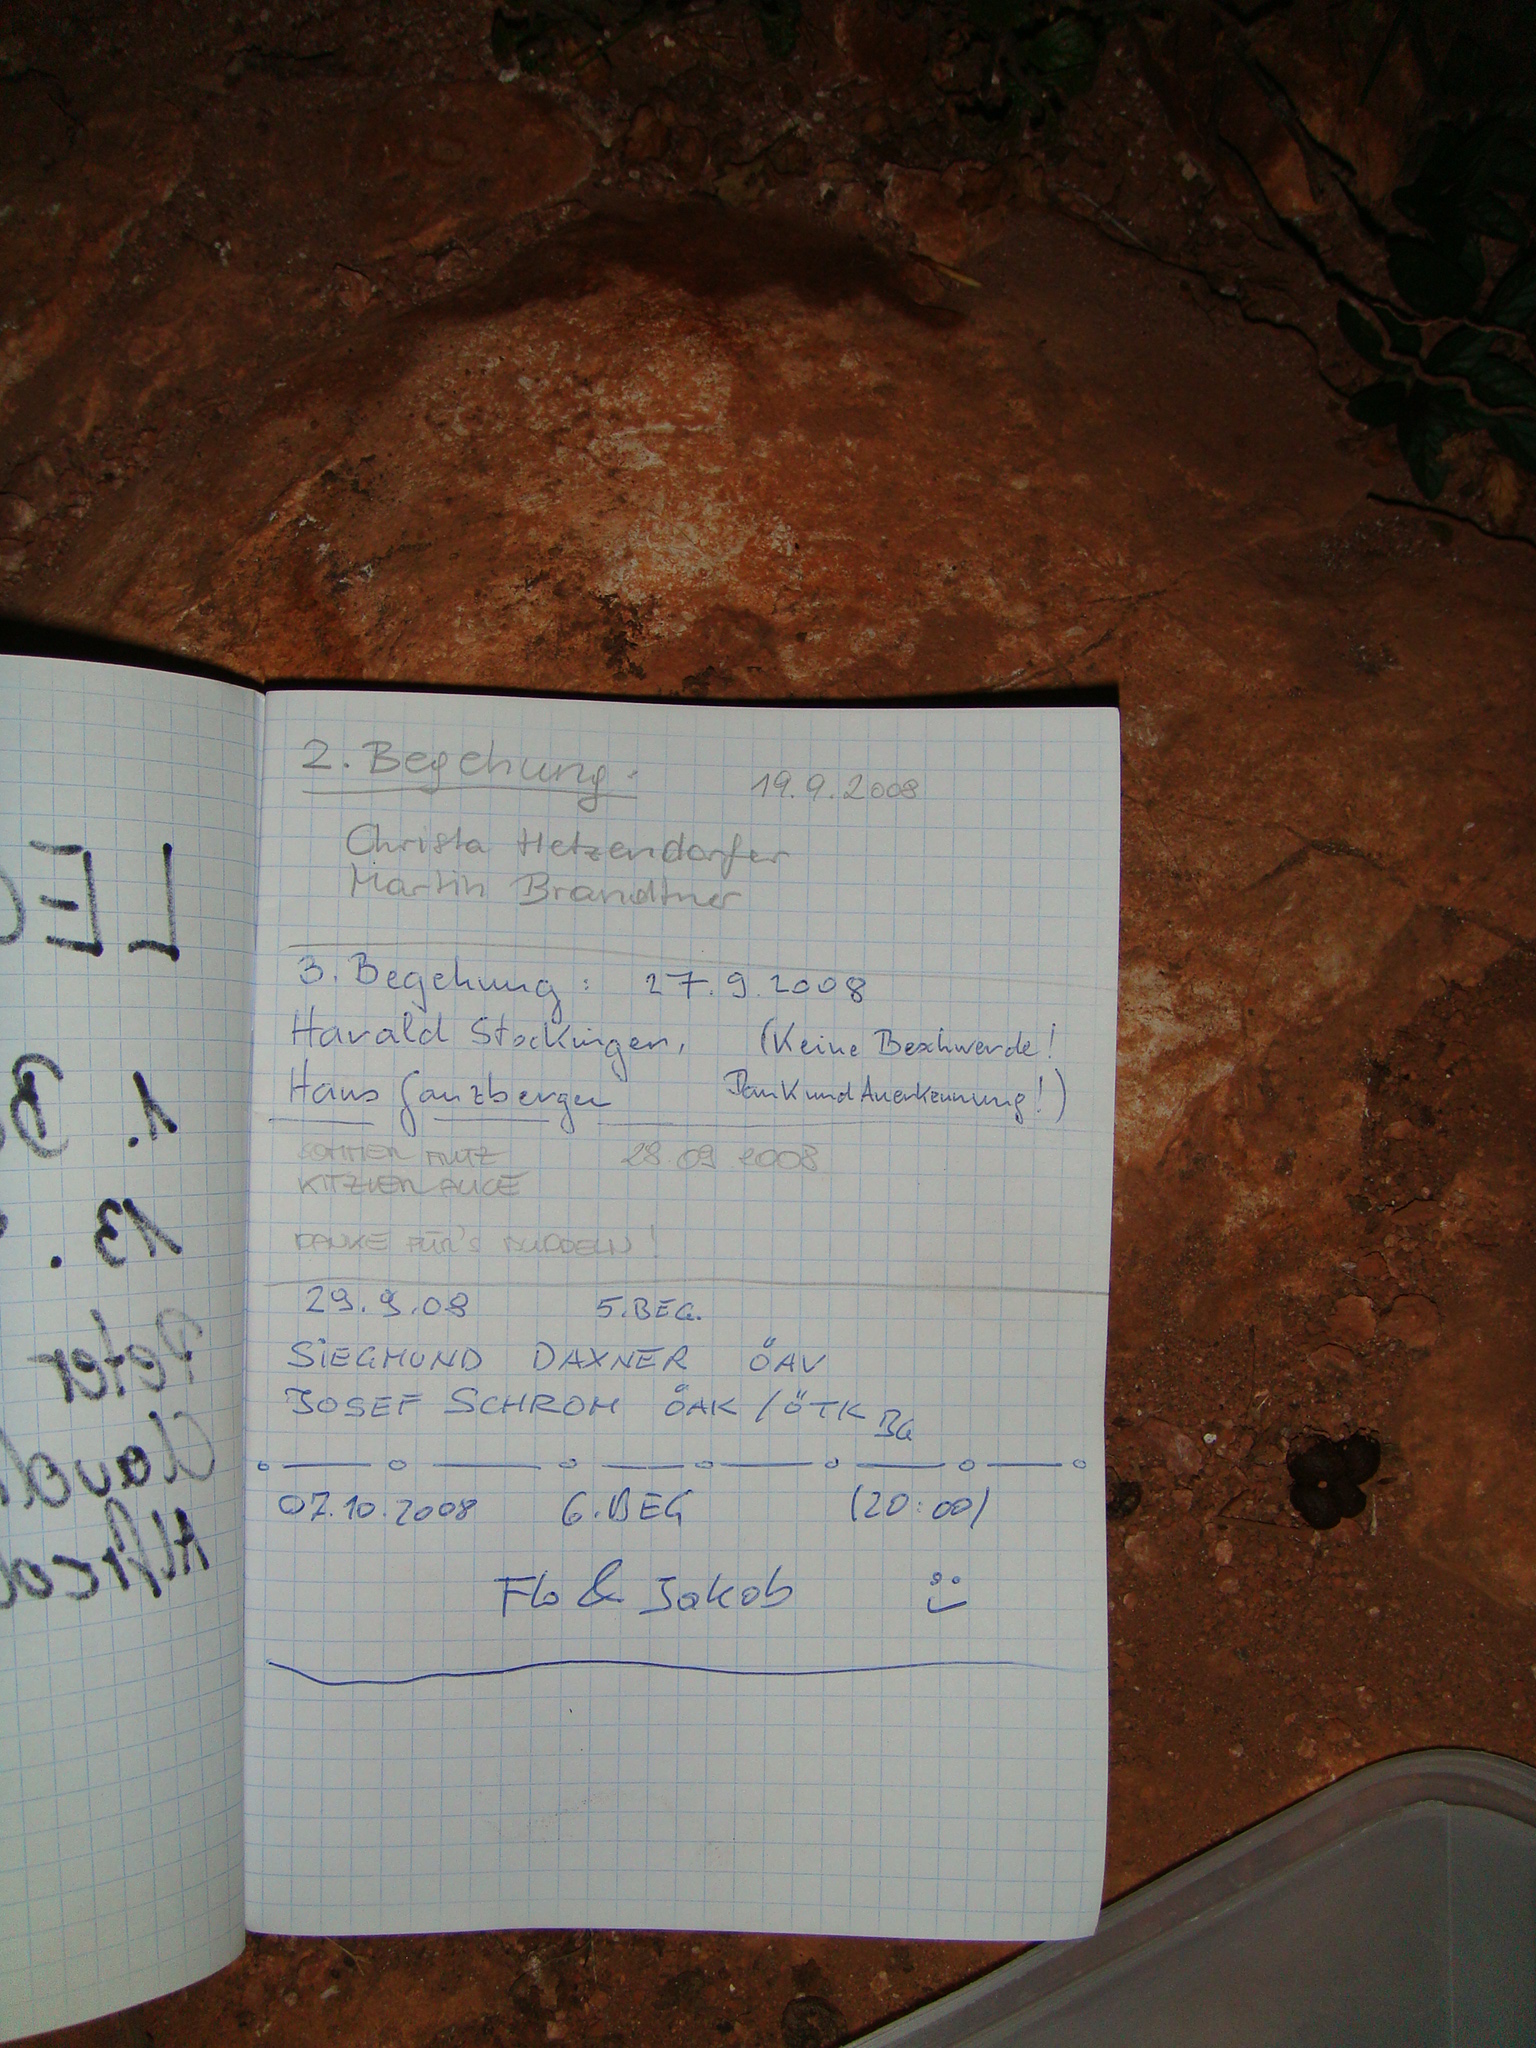 2. Begehung: 19.9.2008
Christa Hetzendorfer
Martin Brandtner
3. Begehung: 27.9.2008
Harald Stockinger, (Keine Beschwerde!
Hans Ganzberger Dank und Anerkennung!)
28.09.2008
DANKE FÜR'S BUDDELN!
29.9.08 5.BEG.
SIEGMUND DAXNER ÖAV
JOSEF SCHROM ÖAK/ÖTK BG
07.10.2008 6.BEG (20:00)
Flo & Jakob